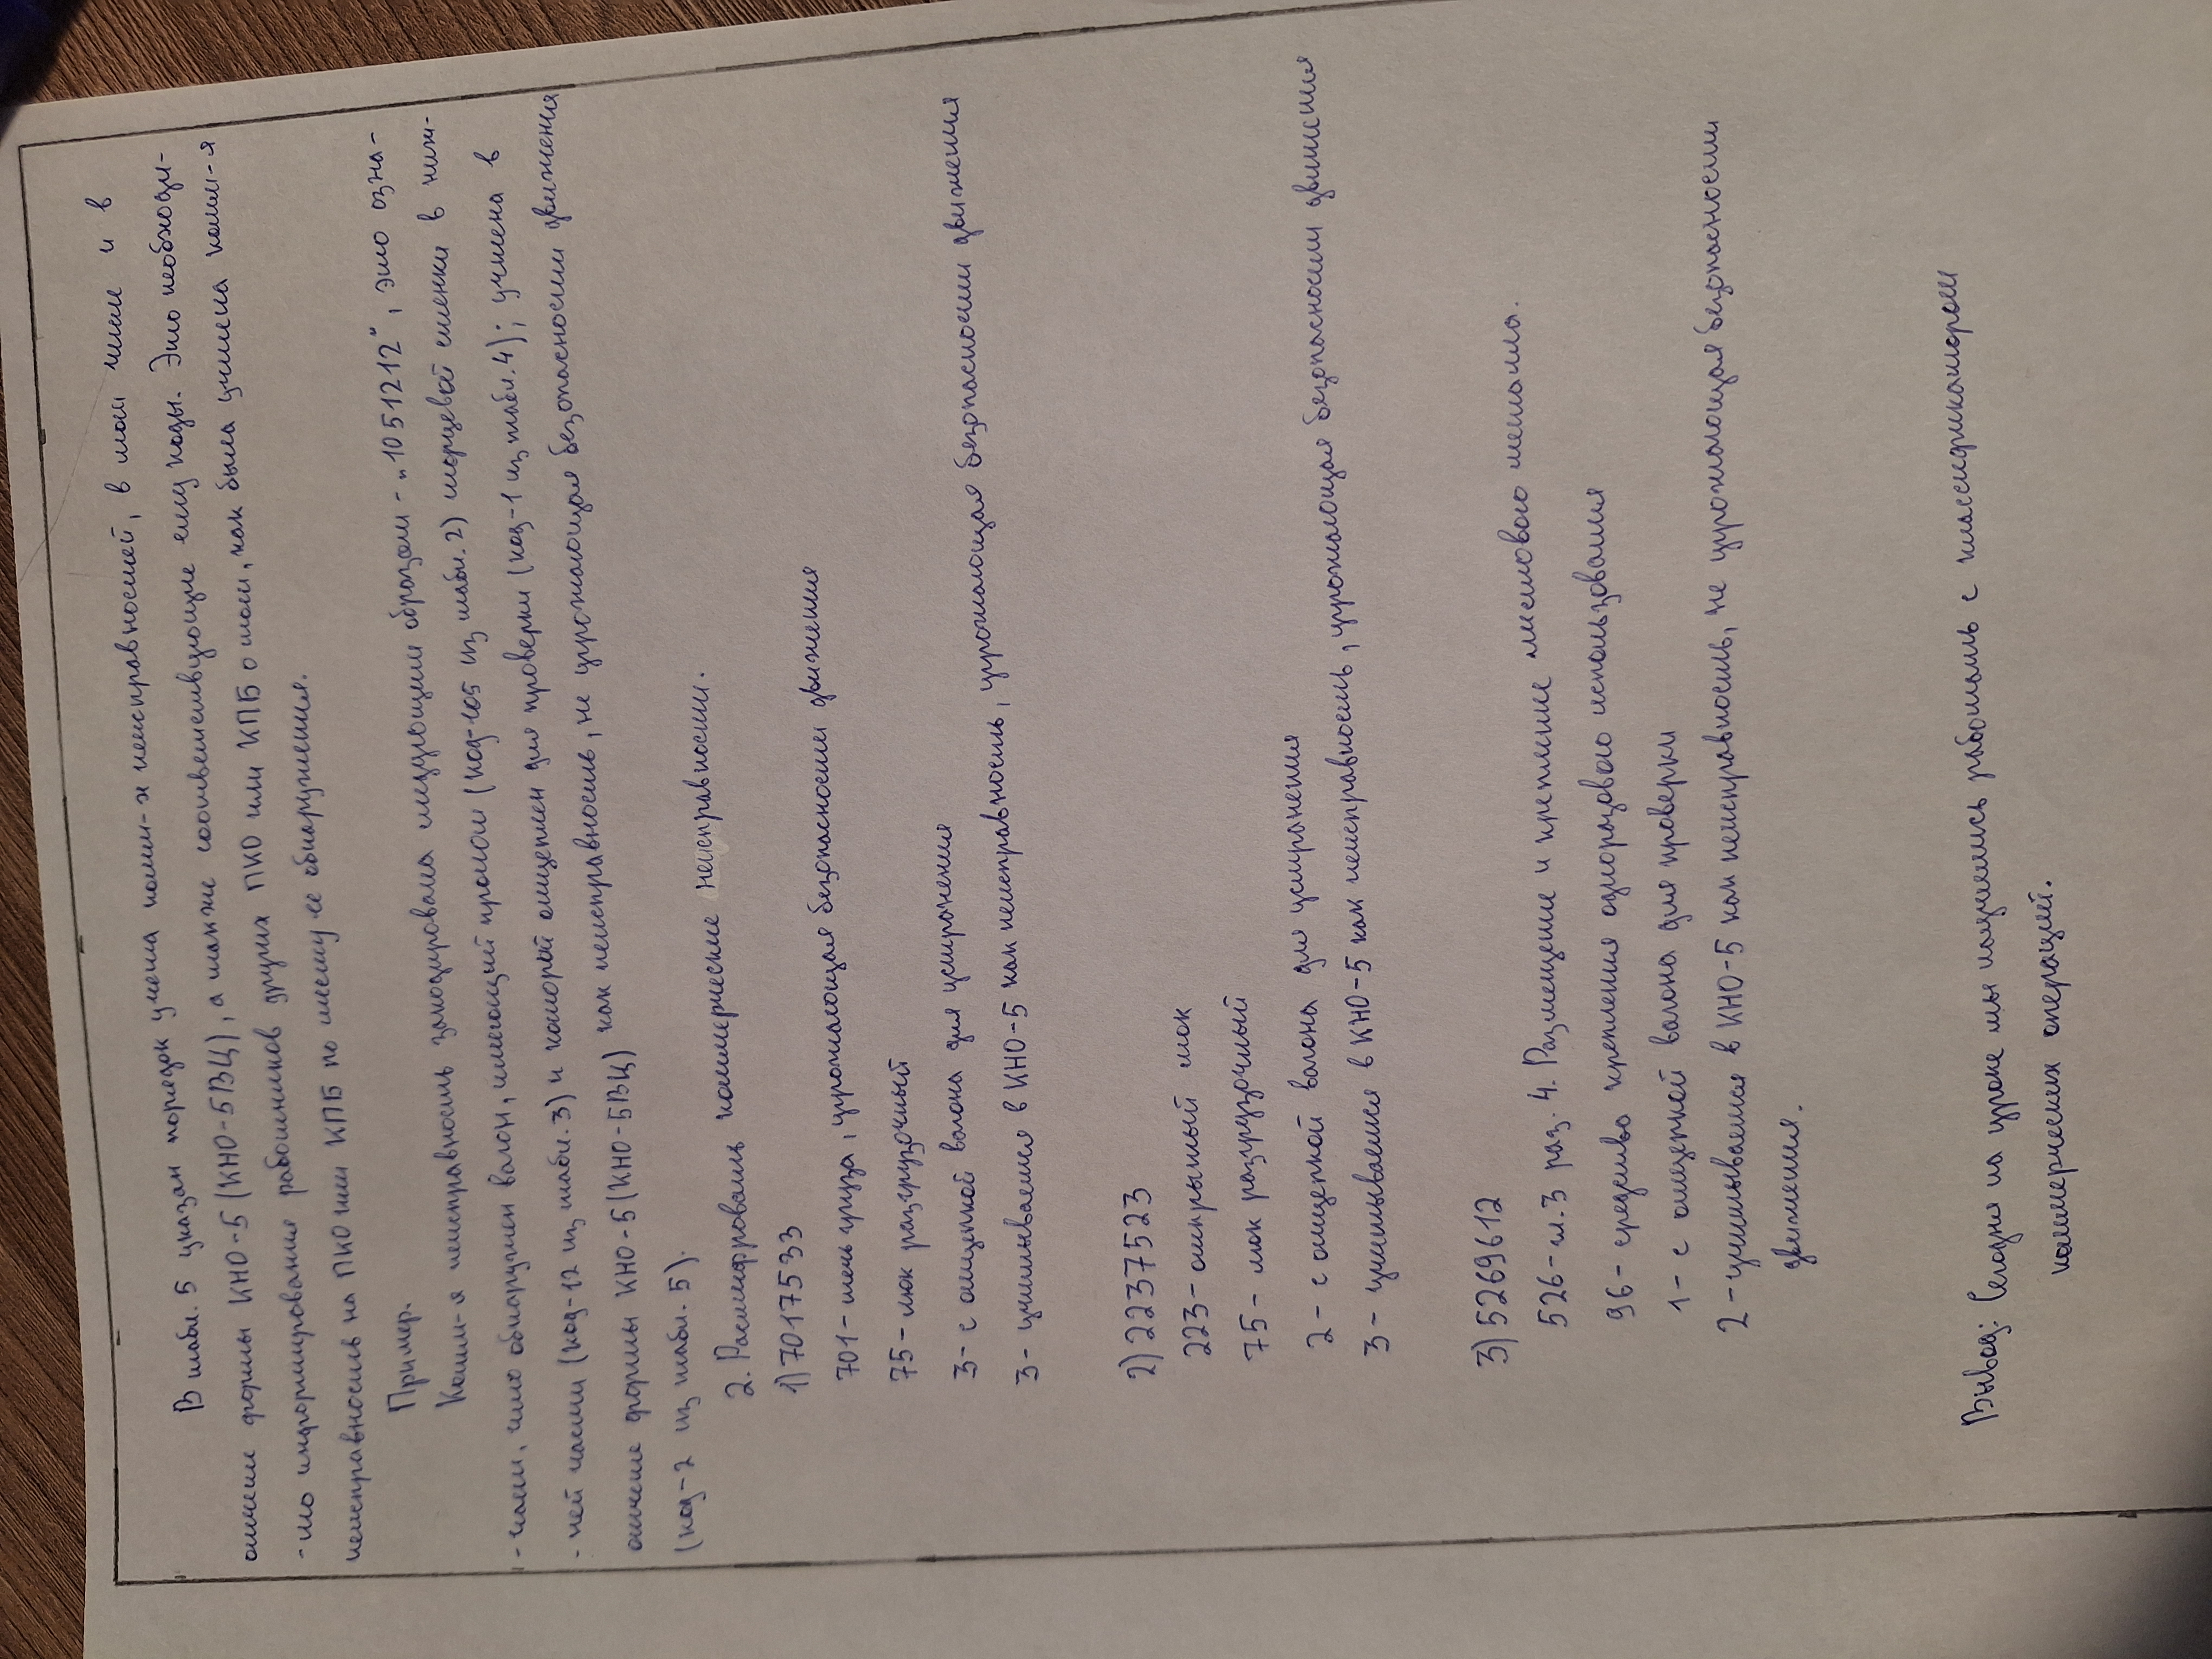 В табл. 5 указан порядок учета комм-х неисправностей, в том числе и в
отчете формы КНО-5 (КНО-5ВЦ), а также соответствующие ему коды. Это необходи-
-мо информирования работников других ПКО или КПБ о том, как была учтена комм-я
неисправность на ПКО или КПБ по месту ее обнаружения.
Пример.
Комм-я неисправность закодирована следующим образом - „1051212", это озна-
-чает, что обнаружен вагон, имеющий пролом (код-105 из табл. 2) торцевой стенки в ниж-
-ней части (код-12 из табл. 3) и который отцеплен для проверки (код-1 из табл. 4); учтена в
отчете формы КНО-5 (КНО-5ВЦ) как неисправность, не угрожающая безопасности движения
(код-2 из табл. 5).
2. Расшифровать коммерческие неисправности.
1) 7017533
701- течь груза, угрожающая безопасности движения
75- люк разгрузочный
3- с отцепкой вагона для устранения
3- учитывается в КНО-5 как неисправность, угрожающая безопасности движения
2) 2237523
223- открытый люк
75- люк разгрузочный
2- с отцепкой вагона для устранения
3- учитывается в КНО-5 как неисправность, угрожающая безопасности движения
3) 5269612
526- т.3 раз. 4. Размещение и крепление листового металла.
96- средство крепления одноразового использования
1- с отцепкой вагона для проверки
2- учитывается в КНО-5 как неисправность, не угрожающая безопасности
движения.
Вывод: Сегодня на уроке мы научились работать с классификатором
коммерческих операций.